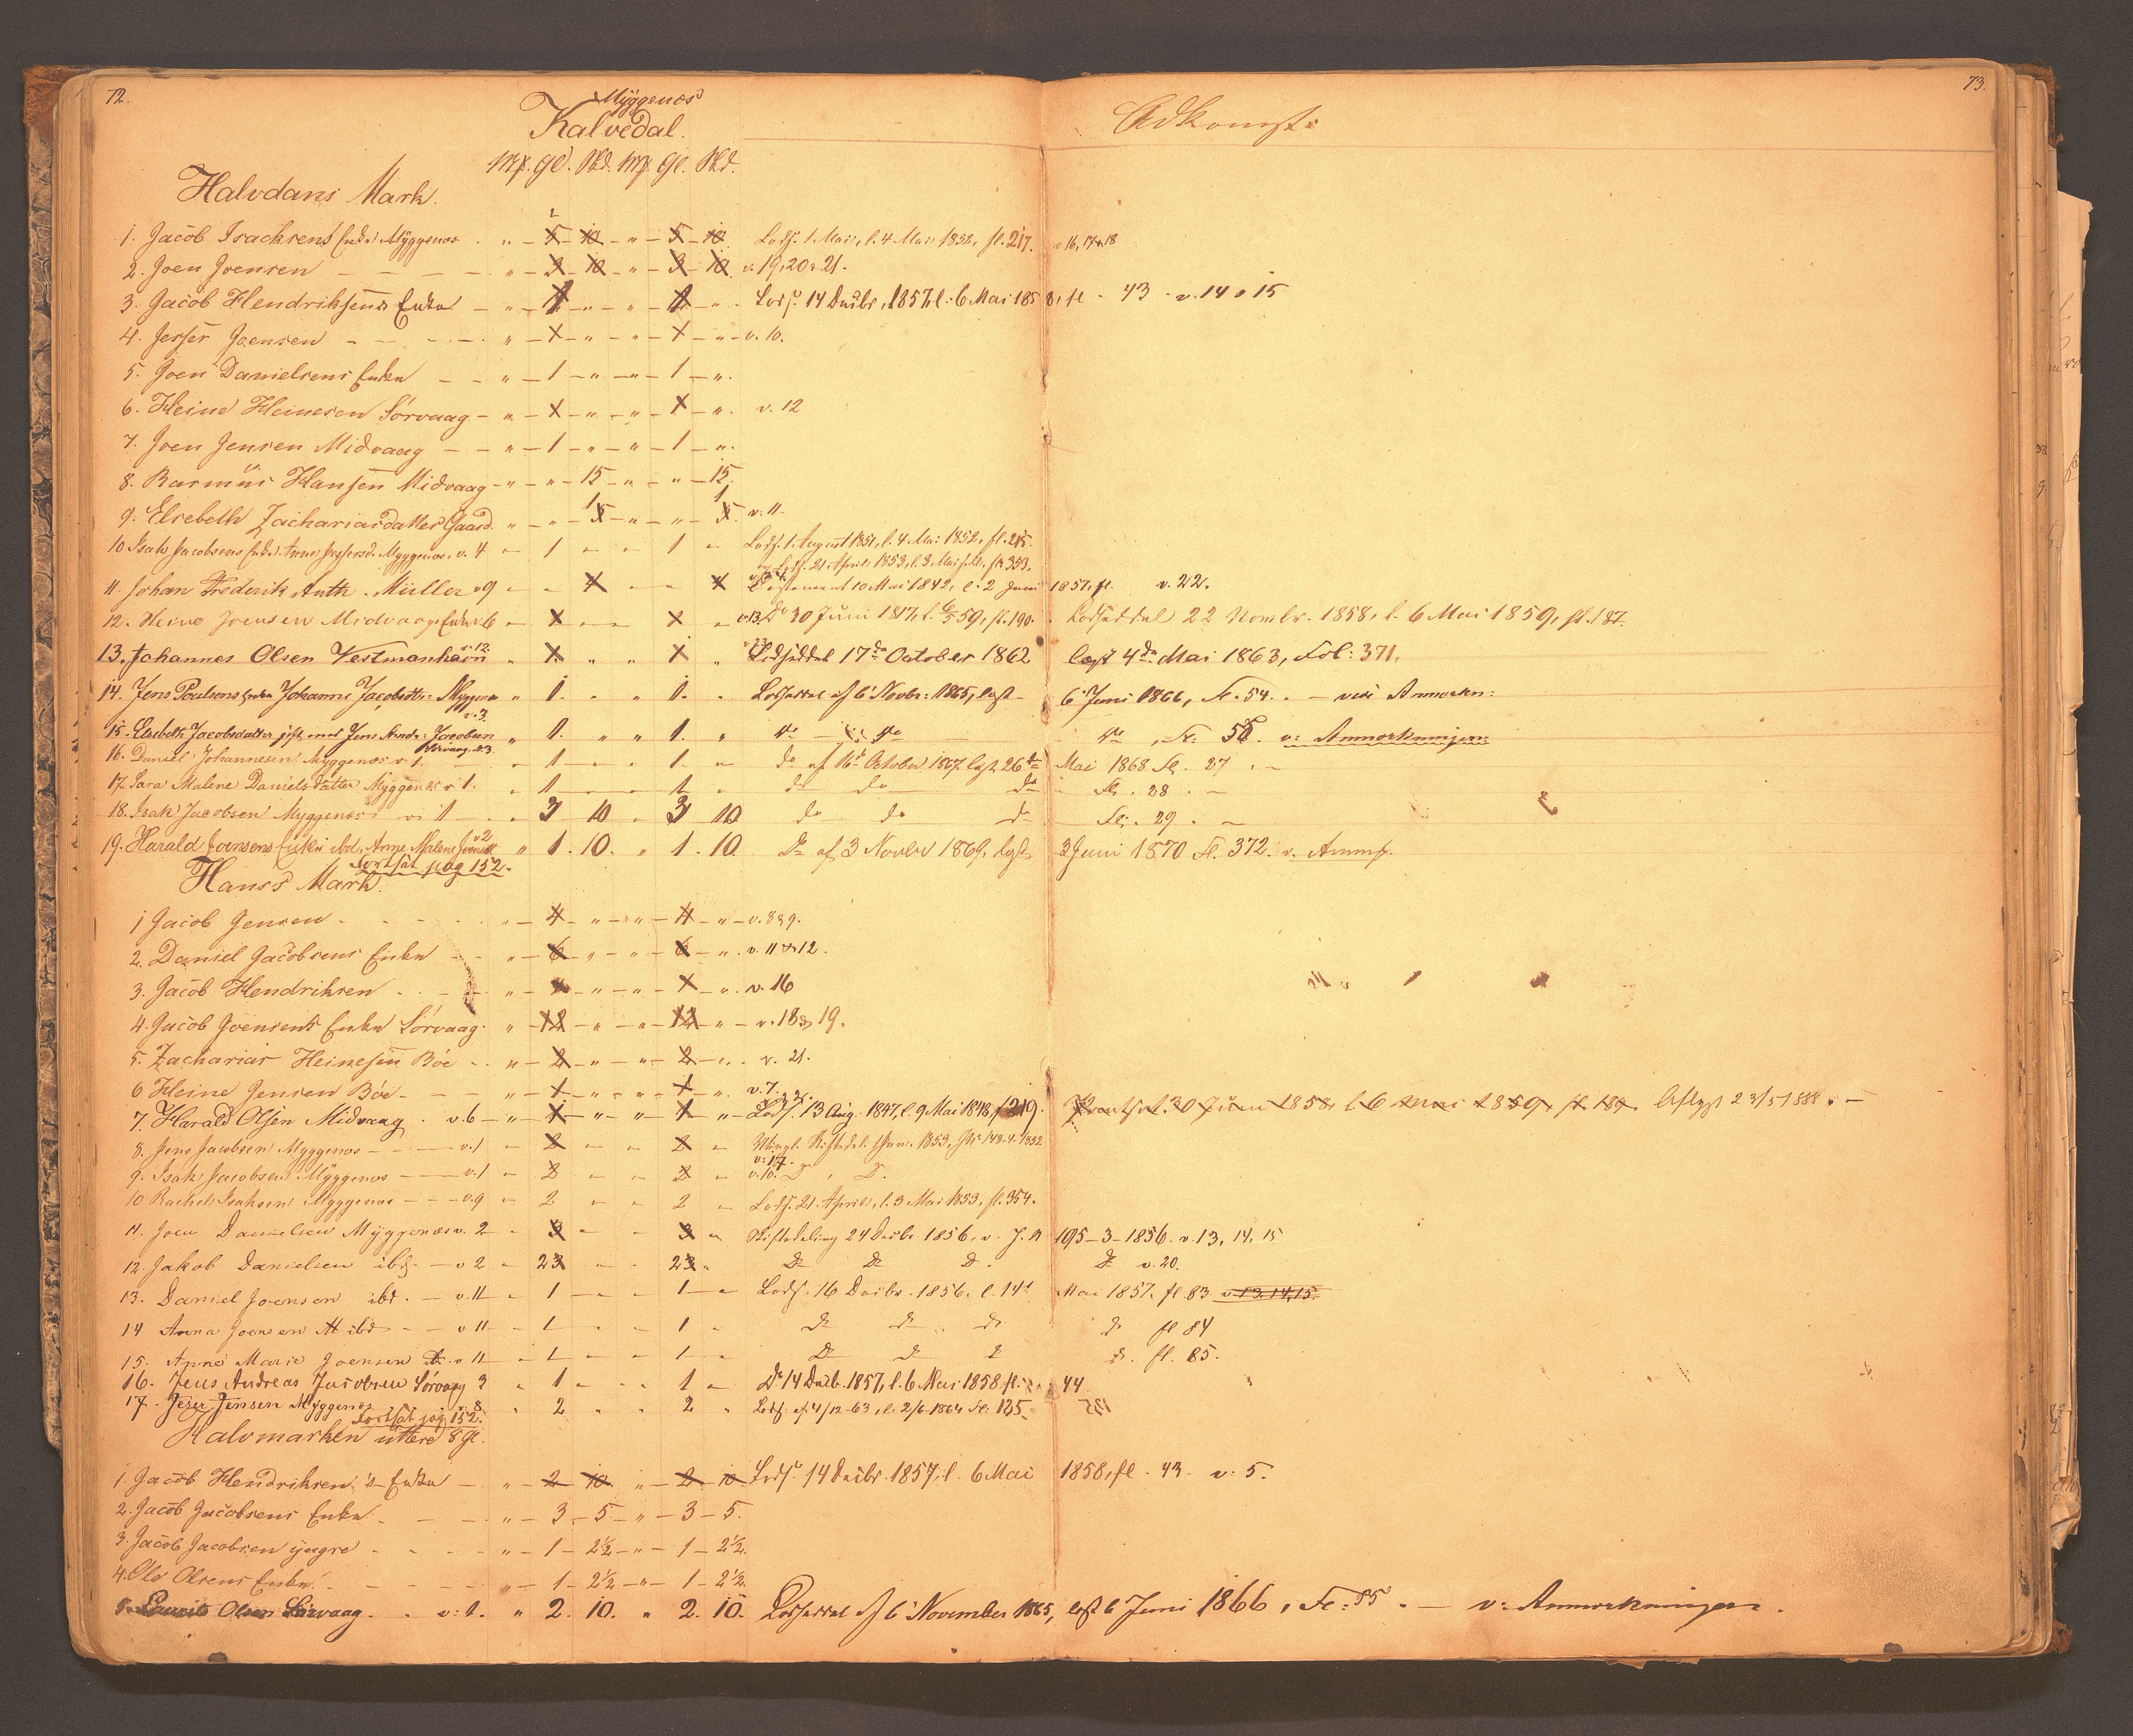 72.
73.
Myggenæs
Kalvedal.
Adkomst.
Mk. Gl. Skd. Mk Gl. Skd.
Halvdans Mark.
1. Jacob Isachsens Enke Myggenæs " 5 10 " 5 10 Lods. 1. Mai, l. 4 Mai 1852, fl. 217. v 16, 17 & 18
2. Joen Joensen " 3 10 " 3 10 v. 19, 20 & 21.
3. Jacob Hendriksens Enke " 1 " " 1 " Lods. 14 Decbr. 1857, l. 6 Mai 1858, fl. 43 v. 14 & 15
4. Jesper Joensen " 1 " " 1 " v. 10.
5. Joen Danielsens Enke " 1 " " 1 "
6. Heine Heinesen Sørvaag " 1 " " 1 " v. 12
7. Joen Jensen Midvaag " 1 " " 1 "
8. Rasmus Hansen Midvaag " " 15 " " 15.
9. Elsebeth Zachariasdatter Gaard. " " 15 " " 15. v. 11.
10 Isak Jacobsens Enke Anne Jespersd. Myggenæs, v. 4 " 1 " " 1 " Lods. 1. August 1851, l. 4. Mai 1852, fl. 215.
og Lods. 21 April 1853, l. 3. Mai s. A., fl. 353.
11. Johan Frederik Anth. Müller v 9 Testament 10 Mai 1842, l. 2 Juni 1857, fl. v. 22.
12. Heine Joensen Midvaag Enke v. 6 " 1 " " 1 " v 13. Do 30 Juni 1817, l. 6/5 59, fl. 190. Lodseddel 22 Novmbr. 1858, l. 6 Mai 1859, fl. 187.
13. Johannes Olsen Vestmanhavn v. 12. " 1 " " 1 " v 23 Lodseddel 17de October 1862 læst 4de Mai 1863, Fol: 371.
14. Jens Poulsens Enke Johanne Jacobsdtr: Myggenæs " 1. " " 1. " Lodseddel af 6 Novbr: 1865, læst 6 Juni 1866, Fl. 54. — vide Anmærkn:
v. 3.
15. Elsebeth Jacobsdatter gift med Jens Andr: Jacobsen " 1. " " 1. " do do do, Fl: 55. v: Anmærkningen:
Sørvaag, v. 3.
16. Daniel Johannesen Myggenæs v. 1. " 1 " " 1. " do af 16de October 1867, læst 26de Mai 1868 Fl. 27
17. Sara Malene Danielsdatter Myggenæs v 1. " 1 " " 1 " do do do Fl. 28.
18. Isak Jacobsen Myggenæs v. 1 " 3 10 " 3 10 do do do Fl. 29.
19. Harald Joensens Enke ibd. Anne Malene v 2 " 1. 10. " 1. 10. Do af 3 Novbr 1869, læst 3 Juni 1870 Fl. 372. v. Anm.
Fortsat pag 152.
Hanss Mark.
1 Jacob Jensen " 4 " " 4 " v. 8 & 9.
2. Daniel Jacobsens Enke " 6 " " 6 " v. 11 & 12.
3. Jacob Hendriksen " 1 " " 1 " v. 16
4. Jacob Joensens Enke Sørvaag " 12 " " 12 " v. 18 & 19.
5. Zacharias Heinesen Bøe " 2 " " 2 " v. 21.
6 Heine Jensen Bøe " 1 " " 1 " v. 7.
7. Harald Olsen Midvaag v. 6 " 1 " " 1 " Lods. 13 Aug. 1847, l. 9 Mai 1848, f 219. Pantsat 30 Juni 1858, l. 6 Mai 1859, fl. 189. Aflyst 23/5 1888.
8. Jens Jacobsen Myggenæs v. 1 " 2 " " 2 " 1853, 148-4-1852
v. 17.
9. Isak Jacobsen Myggenæs v. 1 " 2 " " 2 " v. 10. Do, Do.
10 Rachel Isaksen Myggenæs v. 9 " 2 " " 2 " Lods. 21. April, l. 3. Mai 1853, fl. 354.
11. Joen Danielsen Myggenæs v. 2 " 3 " " 3 " Skiftedeling 24 Decbr 1856. v. J. N 195-3-1856. v. 13, 14, 15
12. Jakob Danielsen ibd. v 2 " 23 " " 23 " Do Do Do. Do v. 20.
13. Daniel Joensen ibd. v. 11 " 1 " " 1 " Lods. 16 Decbr. 1856. l. 14d Mai 1857. fl. 83 v 13. 14. 15.
14 Anna Joensen ibd v 11 " 1 " " 1 " Do Do Do do fl 84
15. Anne Marie Joensen do. v 11 " 1 " " 1 " Do Do Do do. fl. 85.
16. Jens Andreas Jacobsen Sørvaag 3 " 1 " " 1 " Do 14 Decb. 1857, l. 6 Mai 1858 fl. 44
17. Jens Jensen Myggenæs v. 8. " 2 " " 2 " Lods: af 4/12-63, l. 2/6-1864 Fl: 125.
Fortsat pag 152.
Halvmarken uttere 8 Gl.
1. Jacob Hendriksen's Enke " 2 10 " 2 10 Lods. 14 Decbr. 1857, l. 6 Mai 1858, fl. 43. v: 5.
2. Jacob Jacobsens Enke " 3 5 " 3 5.
3. Jacob Jacobsen yngre " 1 2½ " 1 2½.
4. Ole Olsens Enke " 1 2½ " 1 2½.
5. Laurits Olsen Sørvaag. v: 1. " 2. 10. " 2. 10. Lodseddel af 6 November 1865, læst 6 Juni 1866, Fl: 55. — v: Anmærkningen.